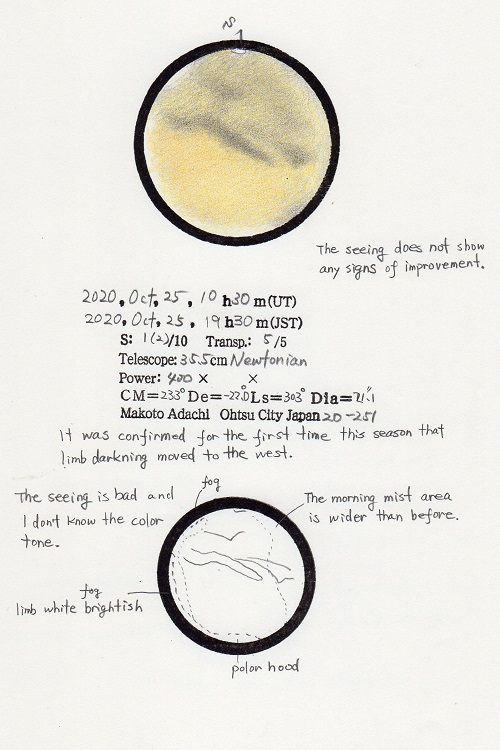 S
The seeing does not show
any signs of improvement.
2020, Oct, 25, 10 h30 m(UT)
2020, Oct, 25, 19 h30 m(JST)
S: 1(2)/10 Transp.: 5/5
Telescope: 355cm Newtonian
Power: 400 × ×
CM=233° De=-22.0 Ls=303° Dia=21".1
Makoto Adachi Ohtsu City Japan 20-251
It was confirmed for the first time this season that
limb darkning moved to the west.
fog
The seeing is bad and
I don't know the color
tone.
The morning mist area
is wider than before.
fog
limb white brightish
polar hood